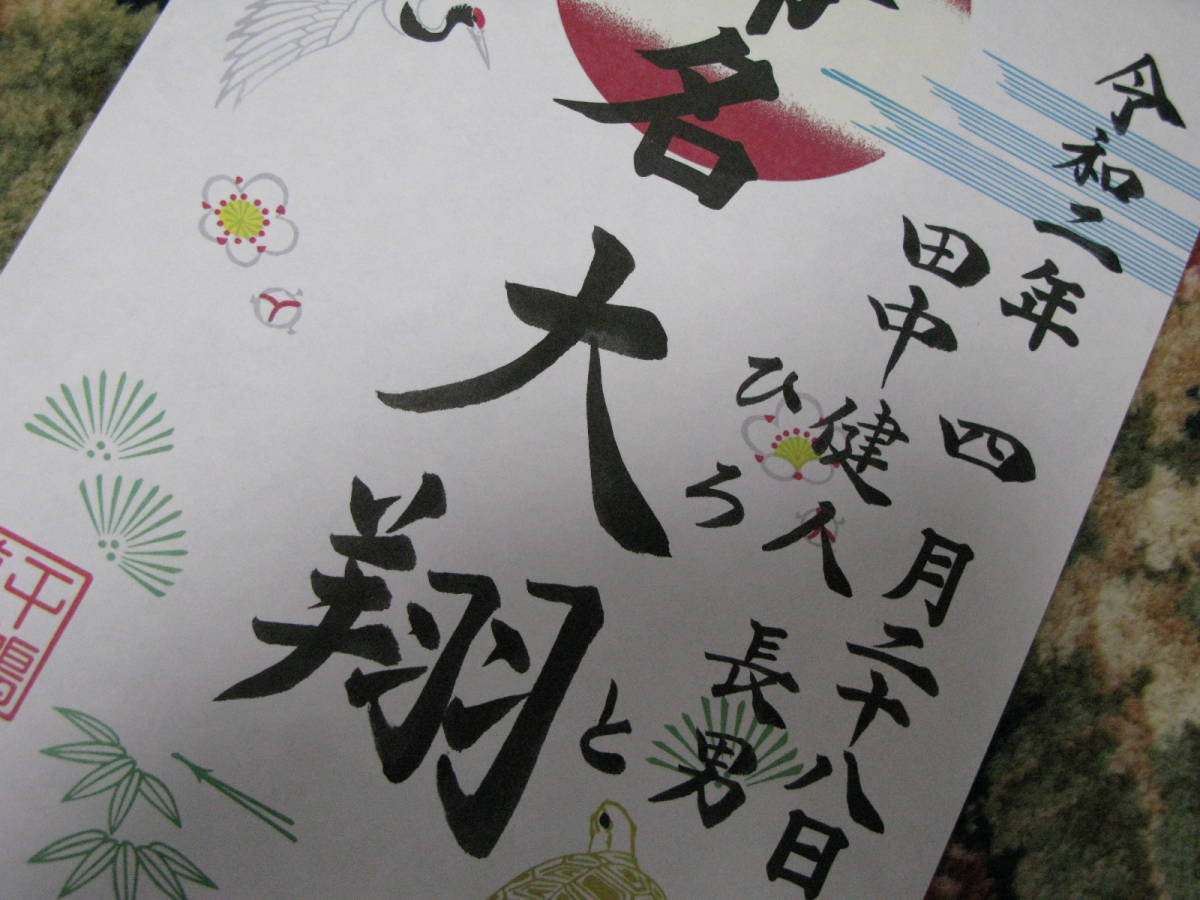 令和二年 四月二十八日
田中健人 長男
ひろと
名
大翔